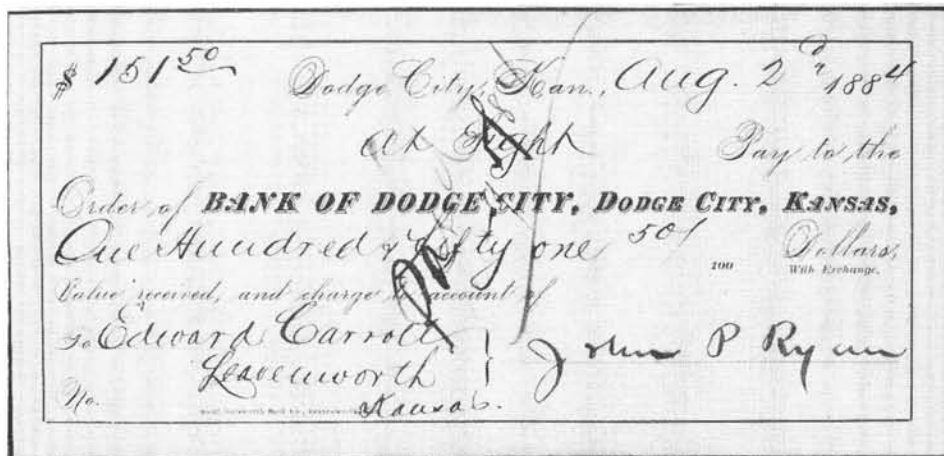 $ 151 50 Dodge City, Kan., Aug. 2d 1884
At Sight Pay to the
Order of BANK OF DODGE CITY, DODGE CITY, KANSAS,
One Hundred & Fifty one 50/100 Dollars,
With Exchange.
Value received, and charge to account of
To Edward Carroll
Leavenworth
Kansas.
John P Ryan
No.